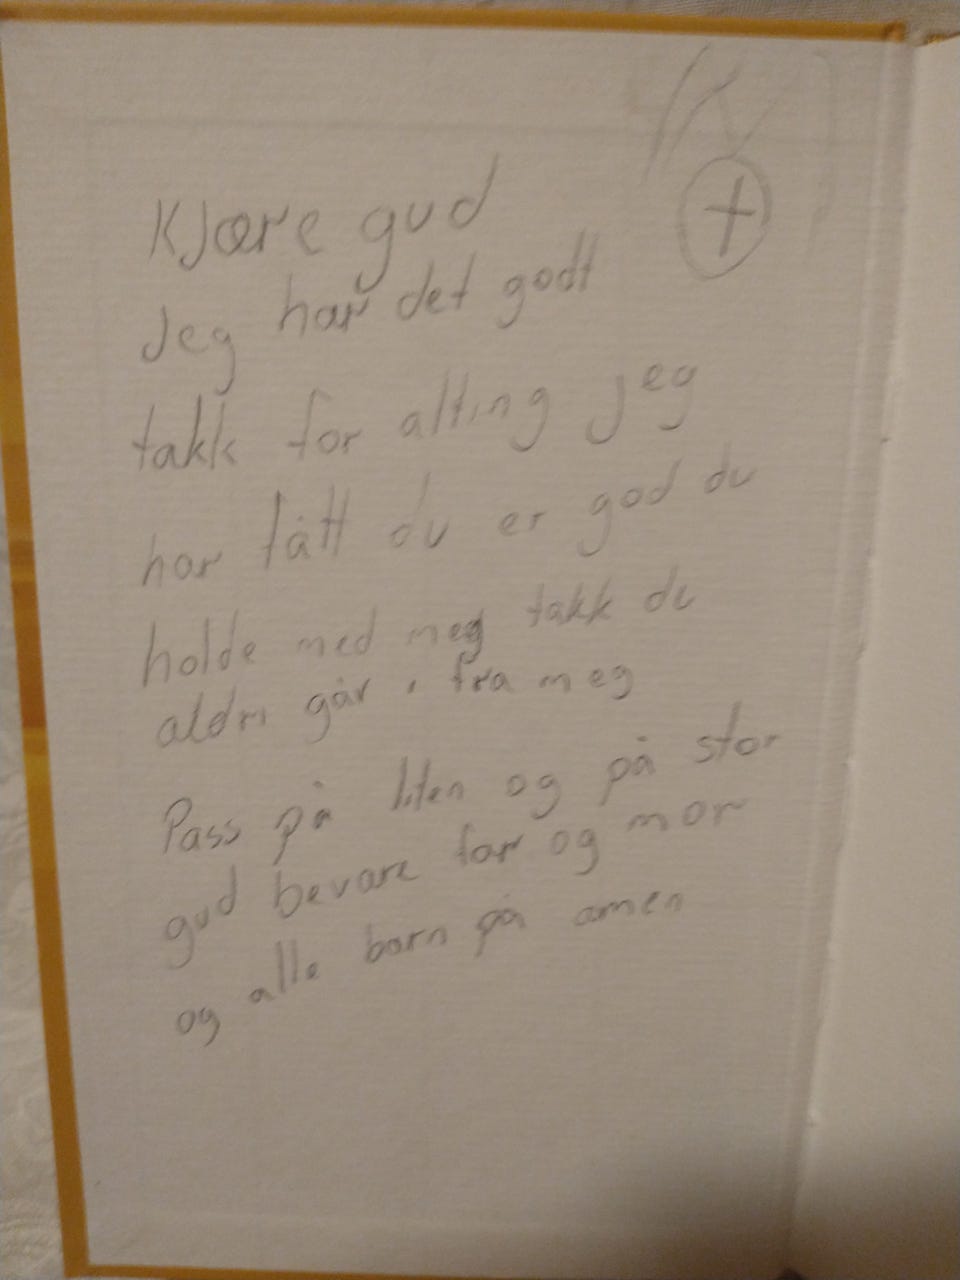 Kjære gud
Jeg har det godt
takk for alting jeg
har fått du er god du
holde med meg takk du
aldri går i fra meg
Pass på liten og på stor
gud bevare far og mor
og alle barn på amen